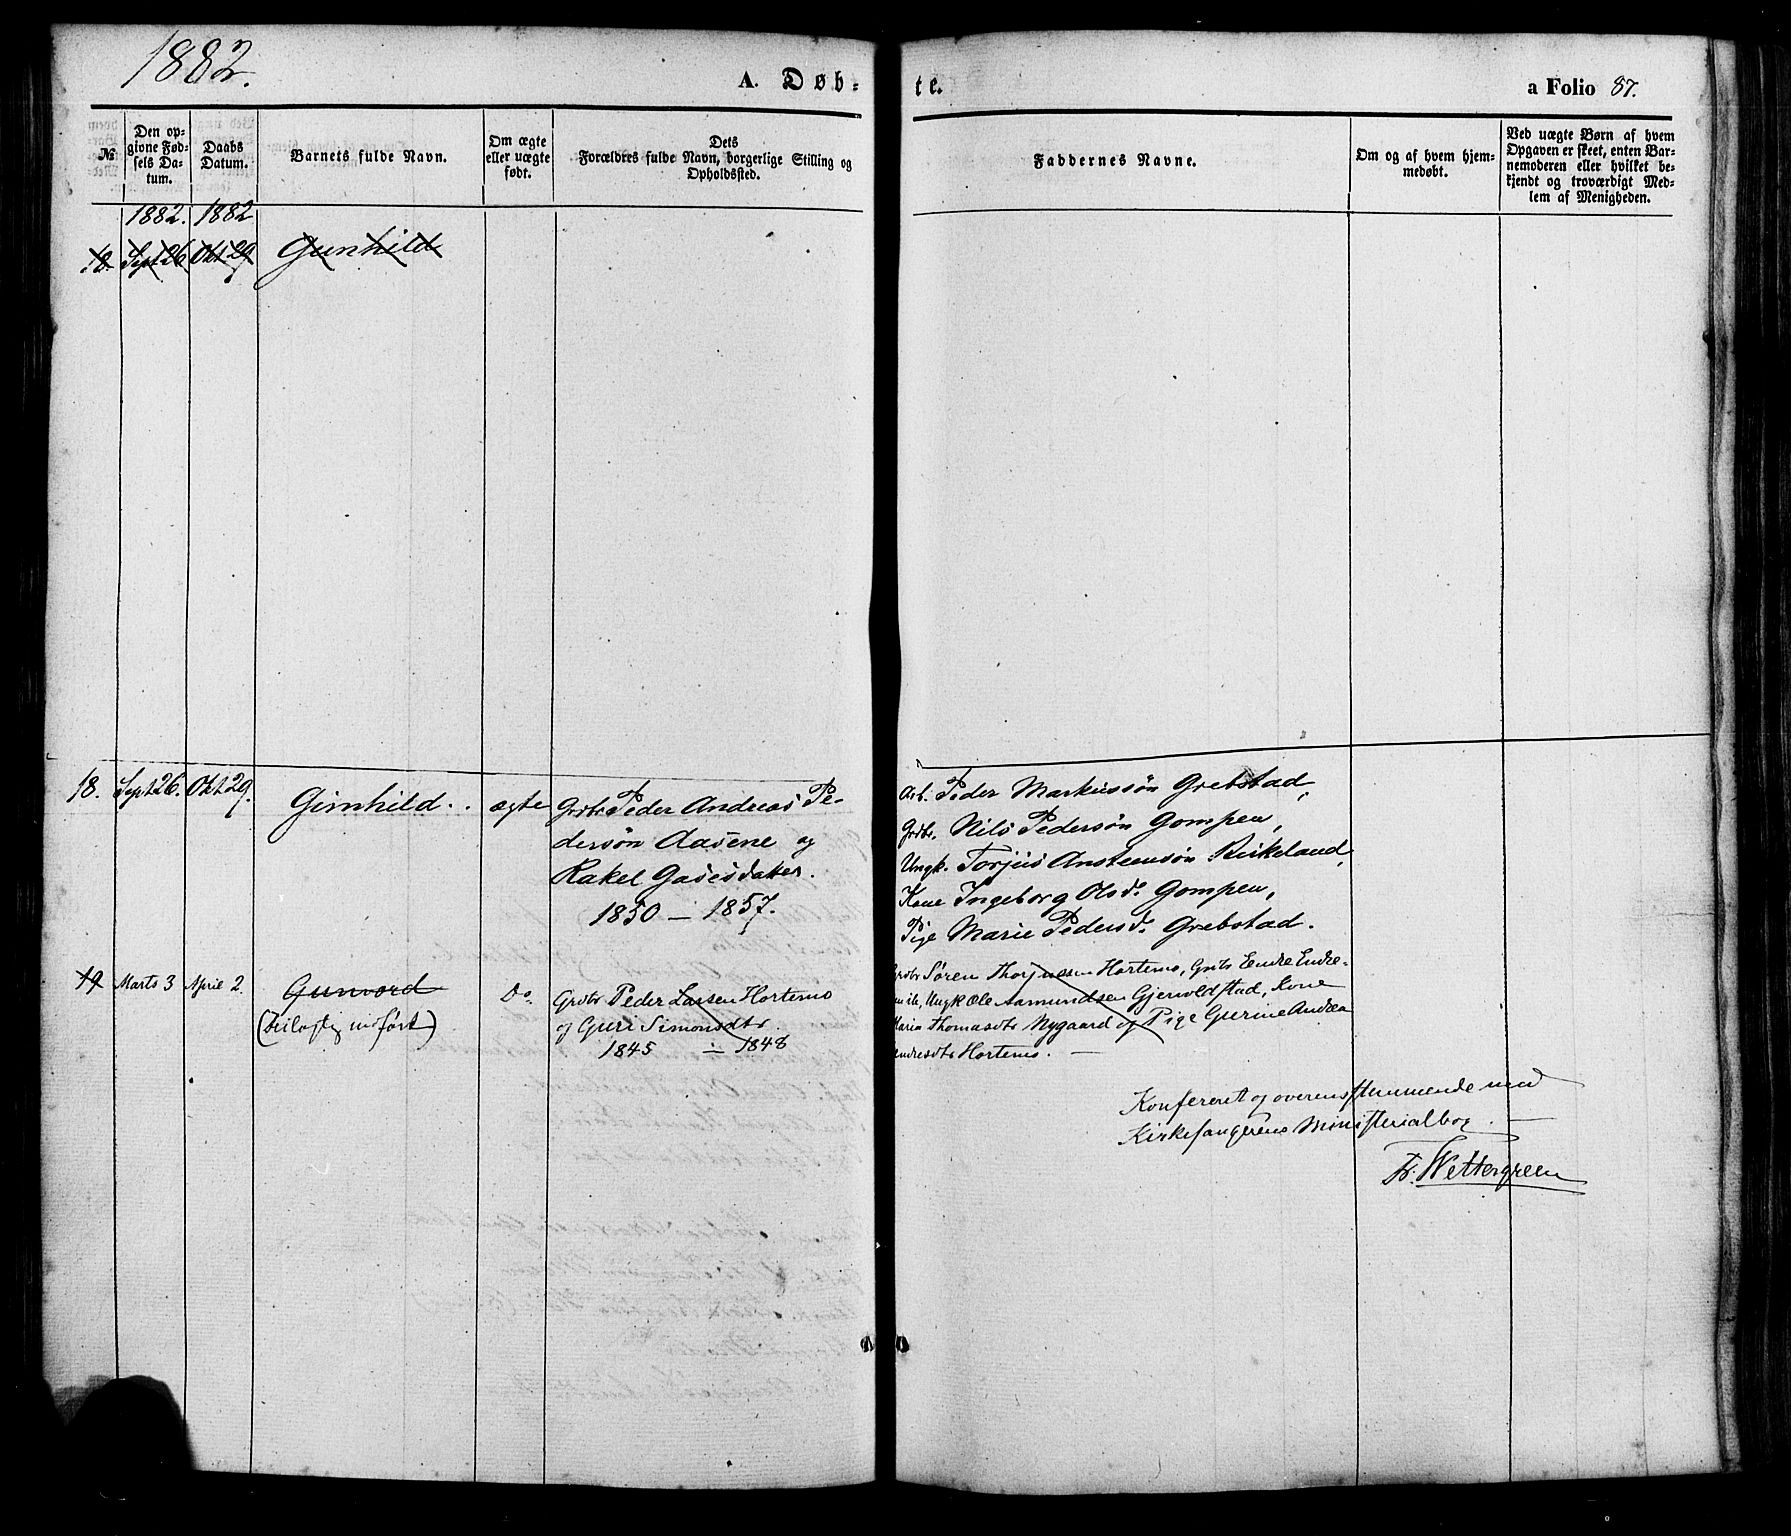 1882.
A. Døb-
te.
a Folio 87.
№
Den op-
givne Fød-
sels Da-
tum.
Daabs
Datum.
Barnets fulde Navn.
Om ægte
eller uægte
født.
Dets
Forældres fulde Navn, borgerlige Stilling og
Opholdssted.
Faddernes Navne.
Om og af hvem hjem-
medøbt.
Ved uægte Børn af hvem
Opgaven er skeet, enten Bar-
nemoderen eller hvilket be-
kjendt og troværdigt Med-
lem af Menigheden.
1882. 1882
18. Sept 26 Okt. 29 Gunhild
18. Sept 26. Okt 29. Gunhild. ægte
Grdbr. Peder Andreas Pe-
dersøn Aasene og
Rakel Gasesdatter.
1850 – 1857.
Arb. Peder Markussøn Grebstad,
Grdbr. Nils Pedersøn Gompen,
Ungk. Torjus Ansteensøn Birkeland,
Kone Ingeborg Olsd. Gompen,
Pige Marie Pedersd. Grebstad.
19 Marts 3 April 2. Gunvord Do.
(feilagtig indført)
Grdbr Peder Larsen Hortemo
og Guri Simonsdtr.
1845 – 1848
Grdbr Søren Thorjussen Hortemo, Grdb Endre Endre-
Ungk Ole Aamundsen Gjervoldstad, Kone
Maria Thomasdtr Nygaard og Pige Gurine Andrea
Endresdtr Hortemo. —
Konfereret og overensstemmende med
Kirkesangerens Ministerialbog. —
Fr. Wettergreen